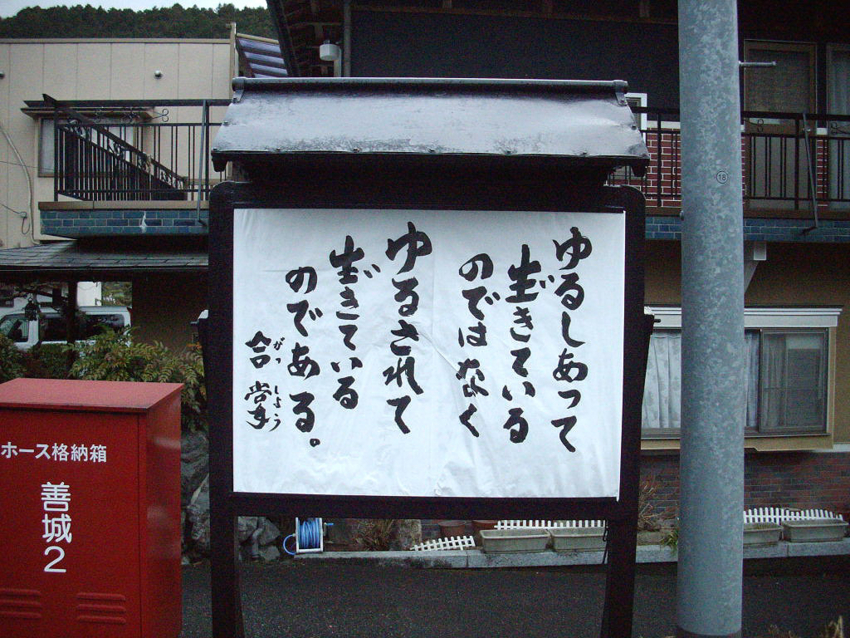 ゆるしあって
生きている
のではなく
ゆるされて
生きている
のである。
合掌
がっ
しょう
ホース格納箱
善城2
18